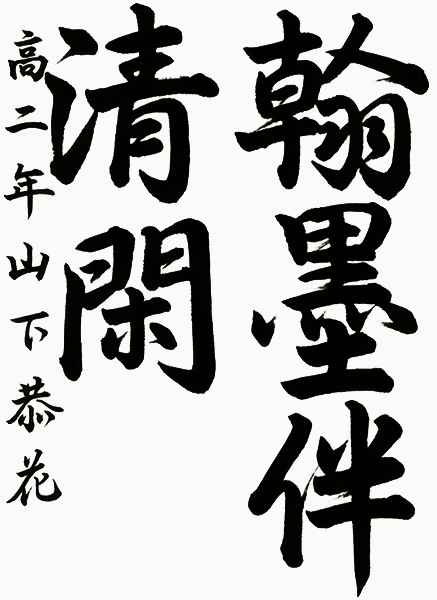 翰墨伴
清閑
高二年山下恭花